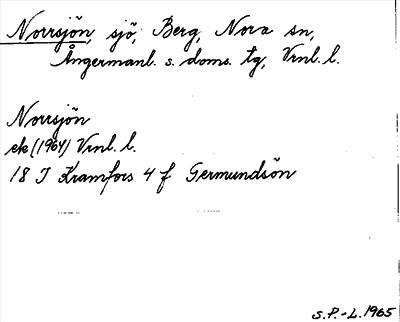 Norrsjön, sjö, Berg, Nora sn,
Ångermanl. s. doms. tg, Vrnl. l.
Norrsjön
ek (1964) Vrnl. l.
18 I Kramfors 4 f Germundsön
S.P.-L. 1965